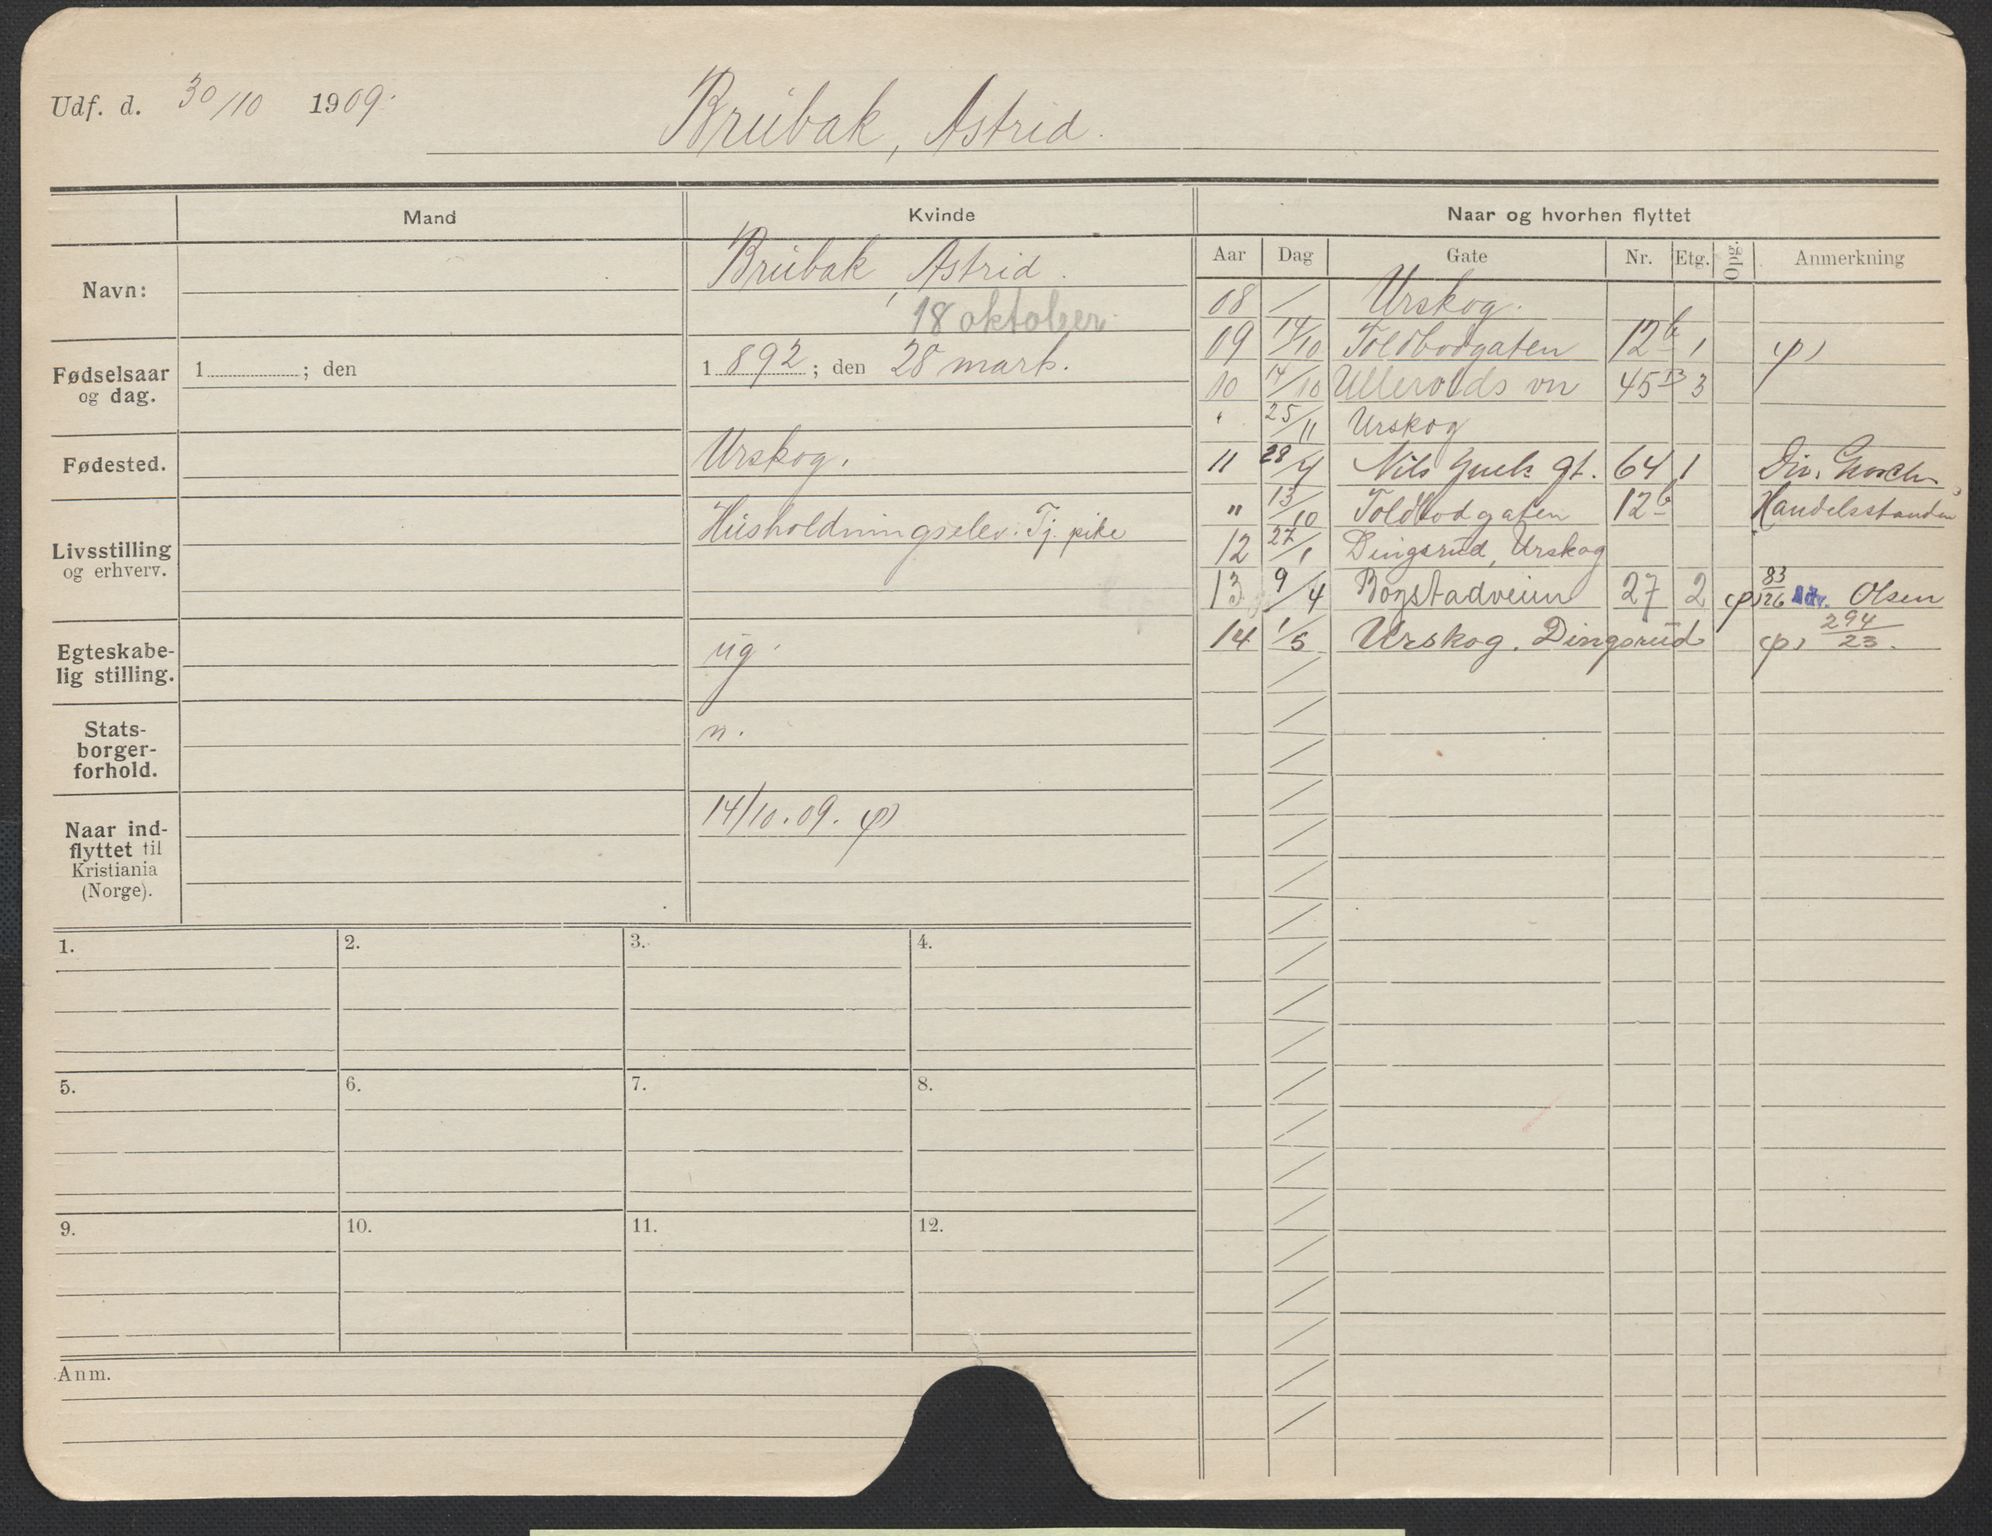 Udf. d. 30/10 1909.
Brubak, Astrid.
Mand
Kvinde
Naar og hvorhen flyttet
Aar Dag Gate Nr. Etg. Opg. Anmerkning
Navn:
Brubak, Astrid.
18 oktober
Fødselsaar og dag.
1 ; den
1 892 ; den 28 marts.
Fødested.
Urskog.
Livsstilling og erhverv.
Husholdningselev. Tj. pike
Egteskabe-
lig stilling.
ug.
Stats-
borger-
forhold.
n.
Naar ind-
flyttet til
Kristiania
(Norge).
14/10.09. φ)
08 / Urskog.
09 14/10 Toldbodgaten 12b 1 φ)
10 14/10 Ullevolds vn 45 13 3
" 25/11 Urskog
11 28/4 Nils Juels gt. 64 1 Div.
" 13/10 Toldbodgaten 12b Handelsstanden
12 27/1 Dingsrud, Urskog
13 9/4 Bogstadveien 27 2 φ) 83/126 Adv. Olsen
14 1/5 Urskog. Dingsrud φ) 294/23.
1. 2. 3. 4.
5. 6. 7. 8.
9. 10. 11. 12.
Anm.